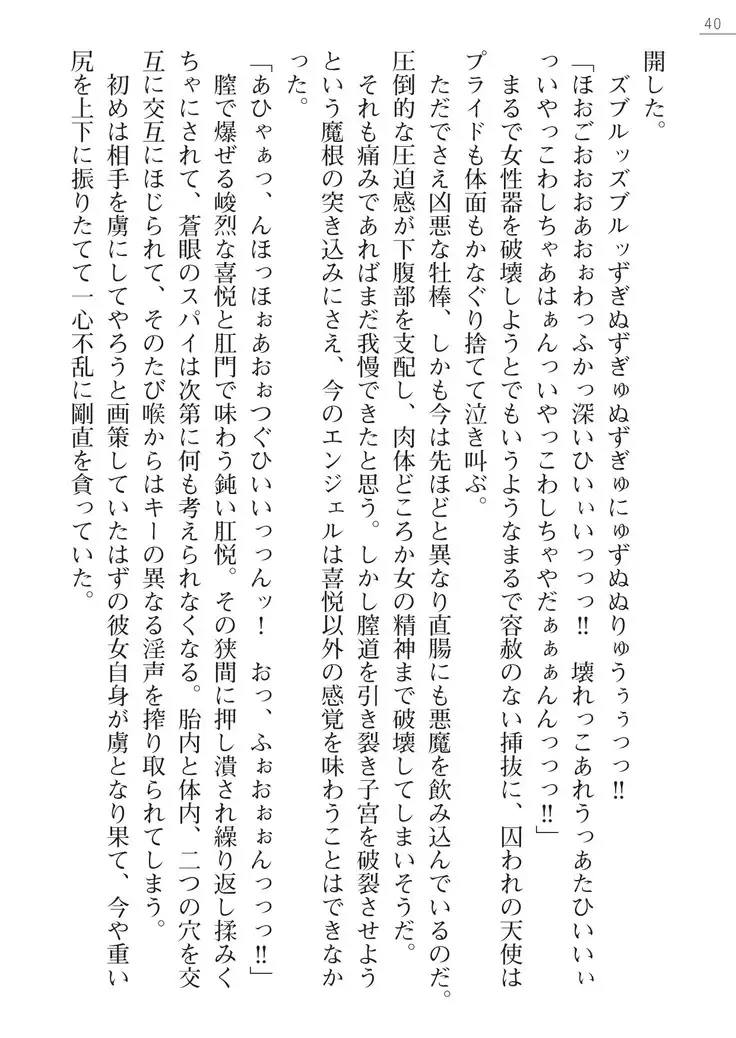 40
開した。
　ズブルッズブルッずぎぬずぎゅぬずぎゅにゅずぬぬりゅうぅぅっっ‼
「ほおごおおおあおぉわっふかっ深いひいぃいっっっ‼　壊れっこあれうっあたひいいぃ
っいやっこわしちゃあはぁんっいやっこわしちゃやだぁぁぁんんっっっ‼」
　まるで女性器を破壊しようとでもいうようなまるで容赦のない挿抜に、囚われの天使は
プライドも体面もかなぐり捨てて泣き叫ぶ。
　ただでさえ凶悪な牡棒、しかも今は先ほどと異なり直腸にも悪魔を飲み込んでいるのだ。
圧倒的な圧迫感が下腹部を支配し、肉体どころか女の精神まで破壊してしまいそうだ。
　それも痛みであればまだ我慢できたと思う。しかし膣道を引き裂き子宮を破裂させよう
という魔根の突き込みにさえ、今のエンジェルは喜悦以外の感覚を味わうことはできなか
った。
「あひゃぁっ、んほっほぉあおぉつぐひいいっっんッ！　おっ、ふぉおぉぉんっっっ‼」
　膣で爆ぜる峻烈な喜悦と肛門で味わう鈍い肛悦。その狭間に押し潰され繰り返し揉みく
ちゃにされて、蒼眼のスパイは次第に何も考えられなくなる。胎内と体内、二つの穴を交
互に交互にほじられて、そのたび喉からはキーの異なる淫声を搾り取られてしまう。
　初めは相手を虜にしてやろうと画策していたはずの彼女自身が虜となり果て、今や重い
尻を上下に振りたてて一心不乱に剛直を貪っていた。